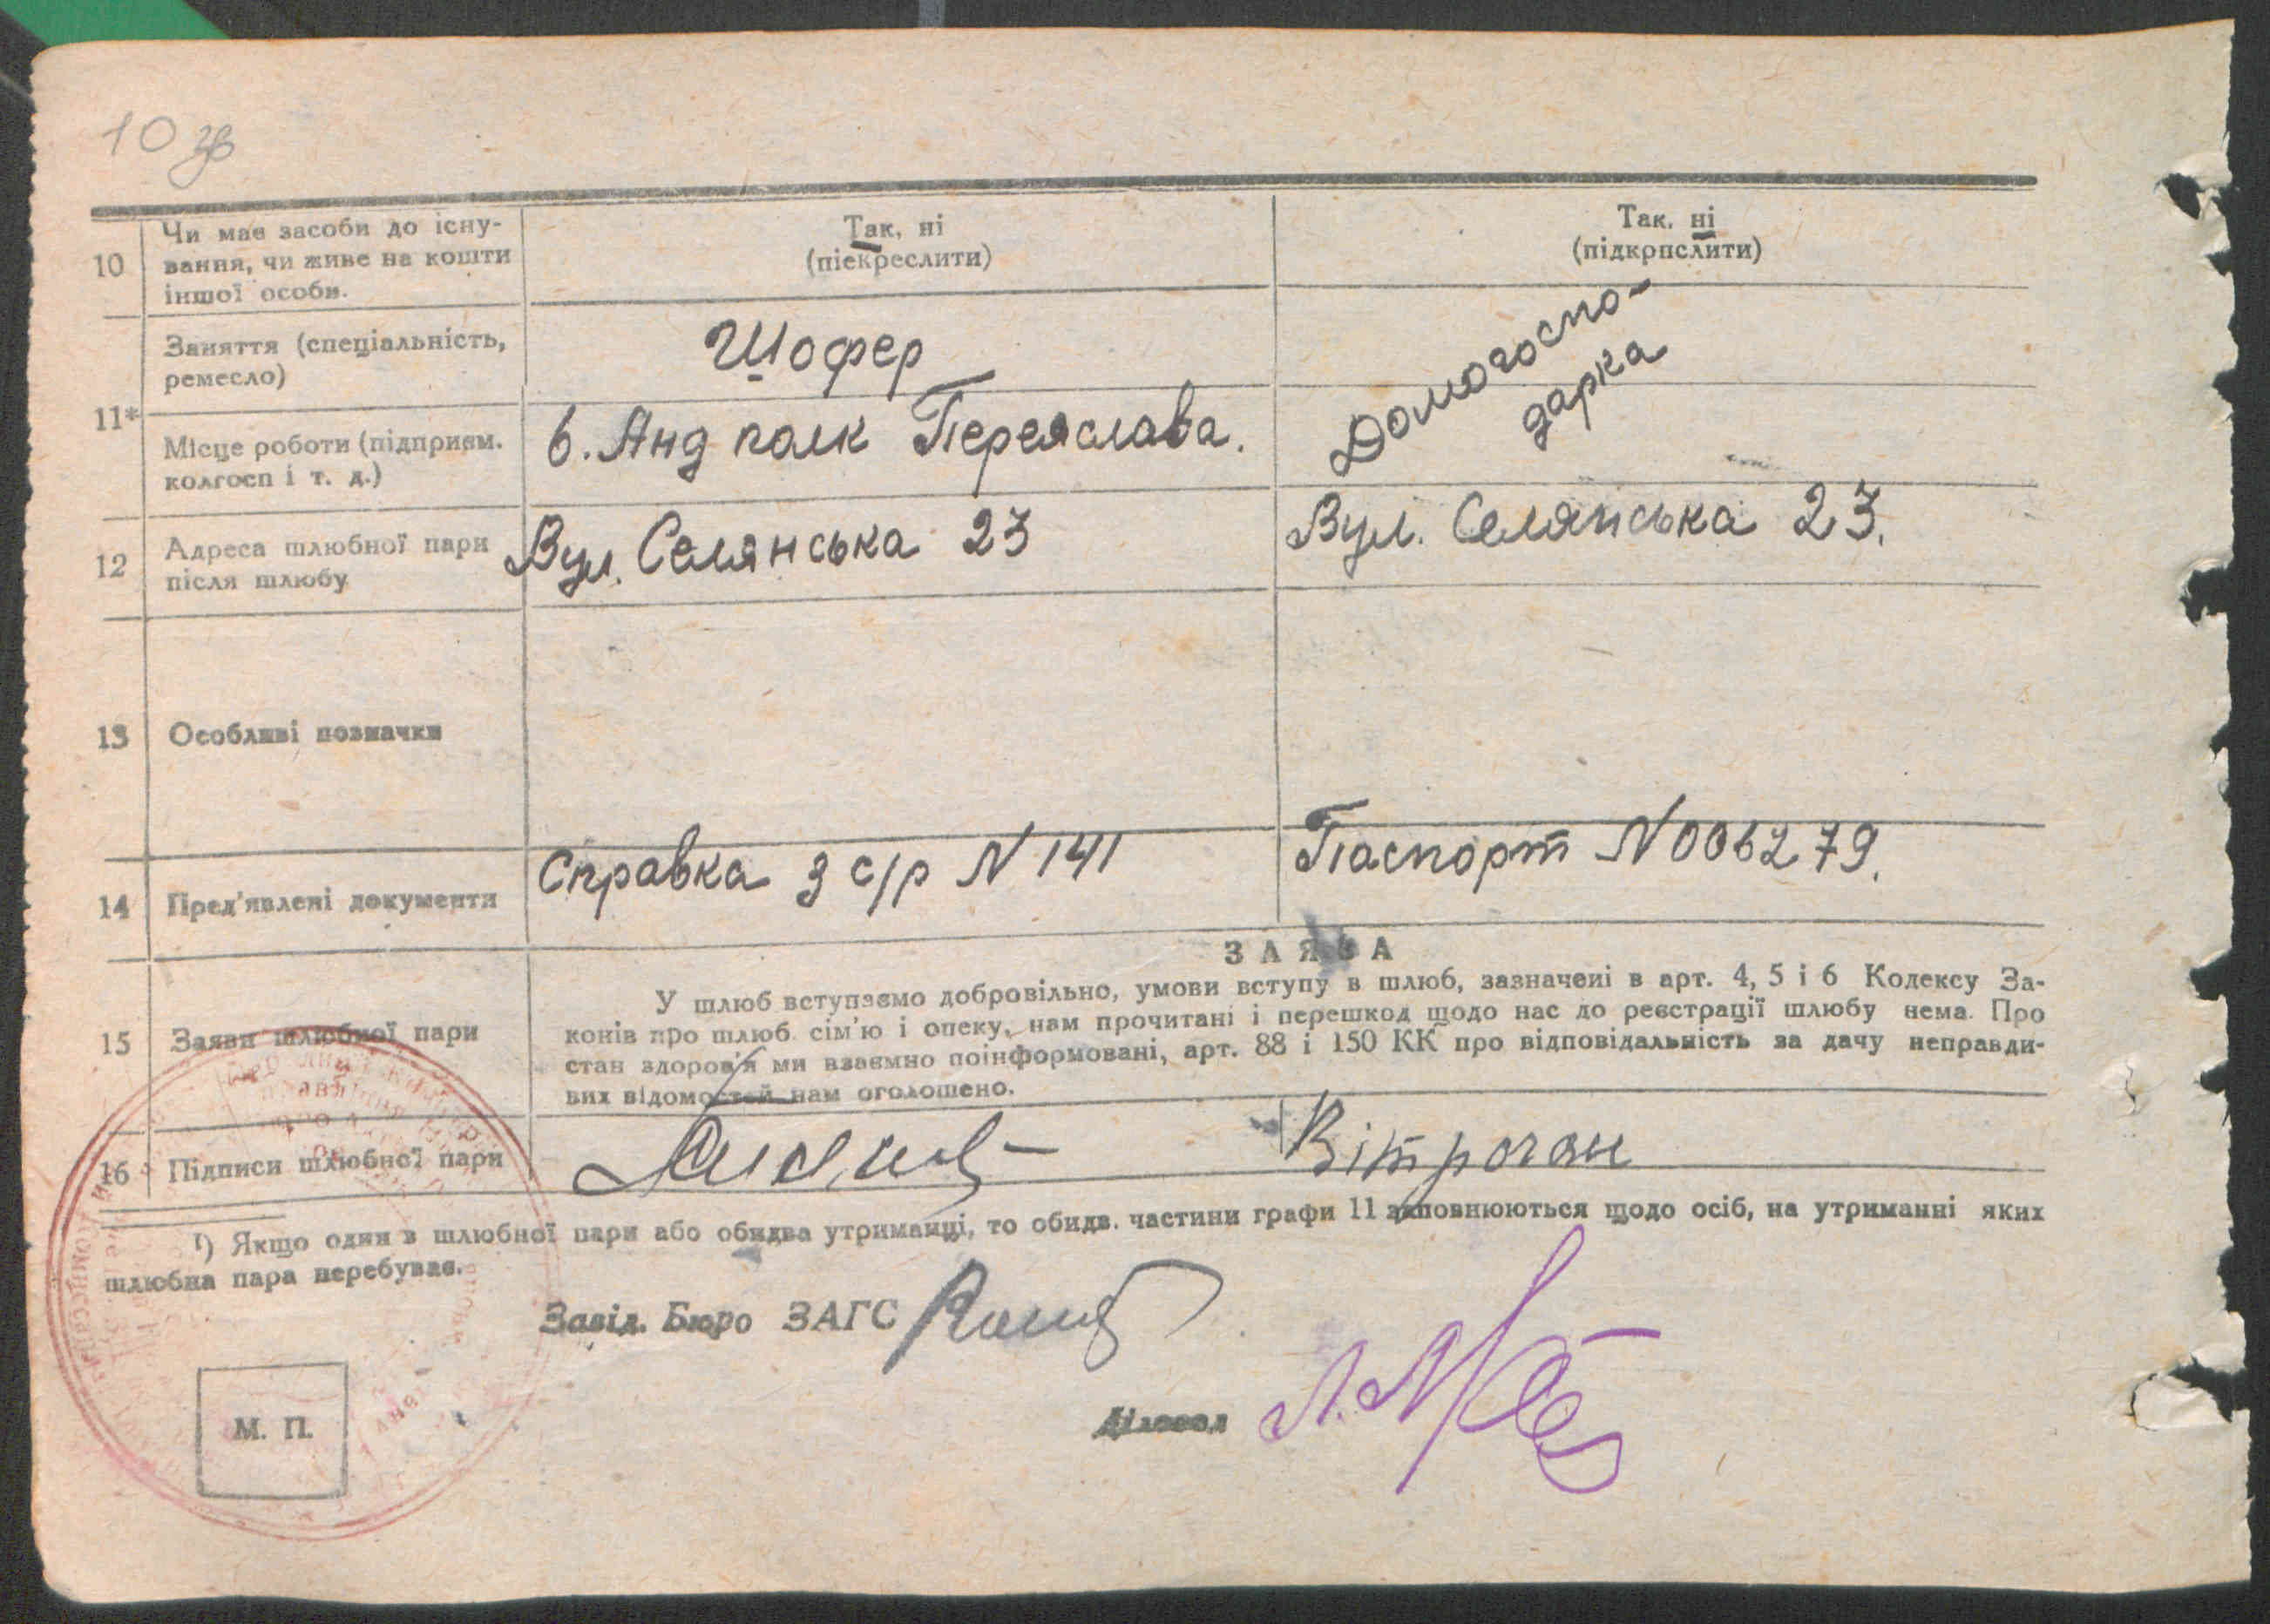 10 зв
10
Чи має засоби до існу-
вання, чи живе на кошти
іншої особи.
Так, ні
(піекреслити)
Так, ні
(підкрпслйти)
11*
Заняття (спеціальність,
ремесло)
Шофер
Домогоспо-
дарка
Місце роботи (підприєм.
колгосп і т. д.)
6. Анд полк Переяслава.
12
Адреса шлюбної пари
після шлюбу
Вул. Селянська 23
Вул. Селянська 23.
13
Особливі позначки
14
Пред'явлені документи
Справка з с/р N 141
Паспорт N 006279.
15
Заяви шлюбної пари
ЗАЯВА
У шлюб вступаємо добровільно, умови вступу в шлюб, зазначені в арт. 4, 5 і 6 Кодексу За-
конів про шлюб сім'ю і опеку, нам прочитані і перешкод щодо нас до реєстрації шлюбу нема. Про
стан здоров'я ми взаємно поінформовані, арт. 88 і 150 КК про відповідальність за дачу неправди-
вих відомостей нам оголошено.
16
Підписи шлюбної пари
Вітроган
¹) Якщо один в шлюбної пари або обидва утриманці, то обидв. частини графи 11 заповнюються щодо осіб, на утриманні яких
шлюбна пара перебуває.
Завід. Бюро ЗАГС
Діловод
М. П.